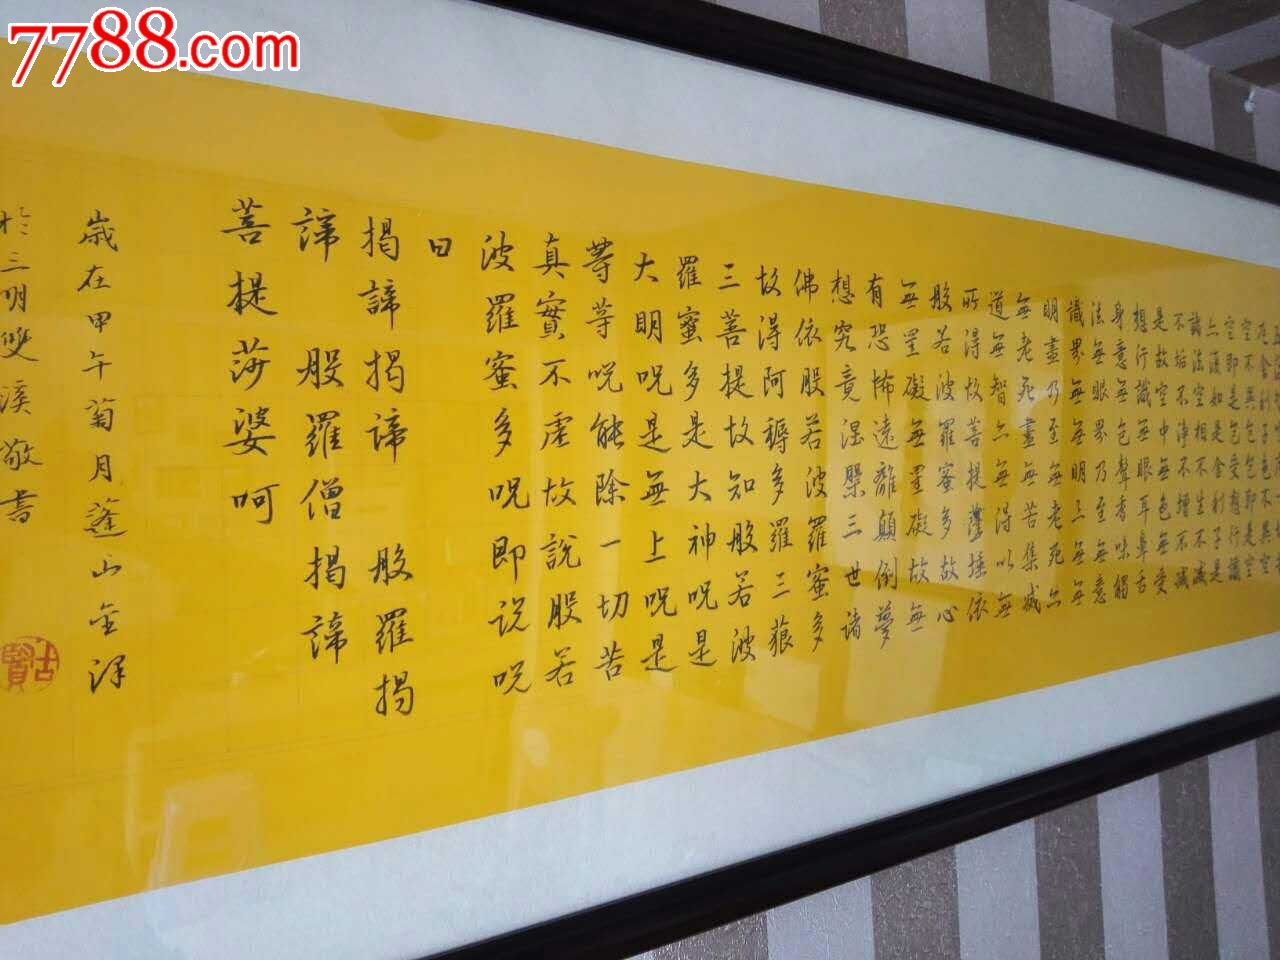 7788.com
厄舍利子色不異空
空不異色色即是空
空即是色受想行識
亦復如是舍利子是
諸法空相不生不滅
不垢不淨不增不減
是故空中無色無受
想行識無眼耳鼻舌
身意無色聲香味觸
法無眼界乃至無意
識界無無明亦無無
明盡乃至無老死亦
無老死盡無苦集滅
道無智亦無得以無
所得故菩提薩埵依
般若波羅蜜多故心
無罣礙無罣礙故無
有恐怖遠離顛倒夢
想究竟涅槃三世諸
佛依般若波羅蜜多
故得阿耨多羅三藐
三菩提故知般若波
羅蜜多是大神呪是
大明呪是無上呪是
等等呪能除一切苦
真實不虛故說般若
波羅蜜多呪即說呪
曰
揭諦揭諦 般羅揭
諦 般羅僧揭諦
菩提莎婆呵
歲在甲午菊月蓬山金洋
於三明雙溪敬書
古賢